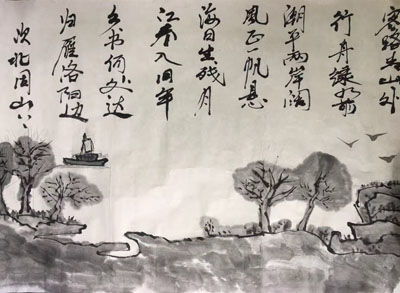 客路青山外
行舟绿水前
潮平两岸阔
風正一帆悬
海日生残月
江春入旧年
乡书何处达
归雁洛阳边
次北固山下